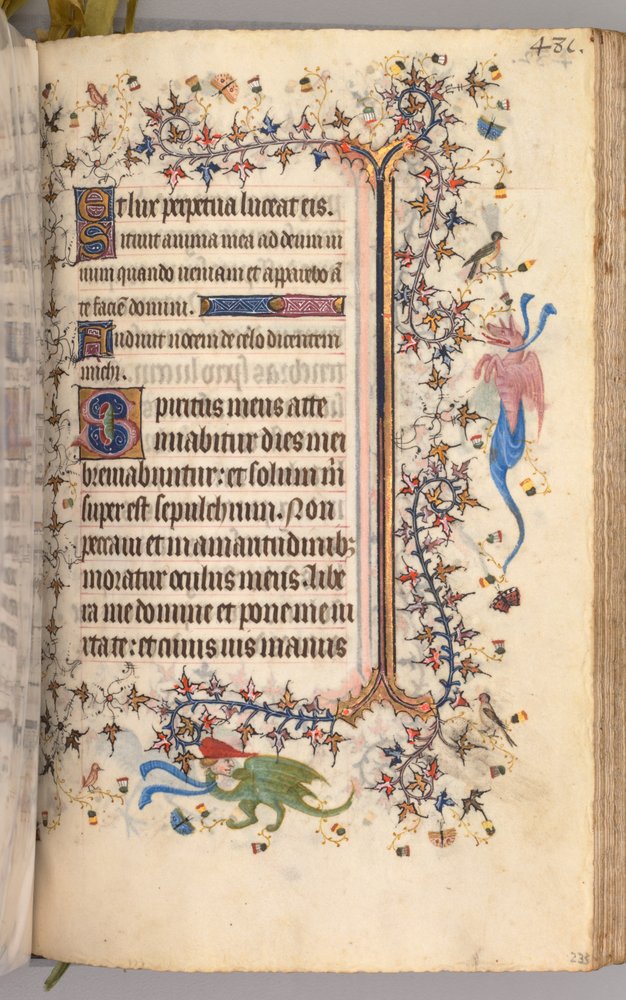 486.
Et lux perpetua luceat eis.
Sitiuit anima mea ad deum ui
uum quando ueniam et apparebo ā
te faciē domini.
Audiuit uocem de celo dicentem
michi.
Spiritus meus atte
nuabitur dies mei
breuiabuntur: et solum m̄
super est sepulchrum. Non
peccaui et in amaritudinibꝫ
moratur oculus meus. Libe
ra me domine et pone me iu
xta te: et cuiuis uis manus
235